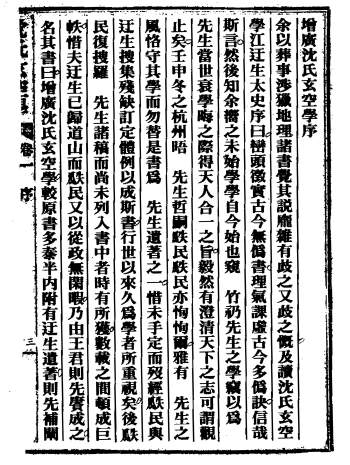 增廣沈氏玄空學序
余以葬事涉獵地理諸書覺其説龐雜有歧之又歧之慨及讀沈氏玄空
學江迂生太史序曰巒頭徵實古今無僞書理氣課虛古今多僞訣信哉
斯言然後知余嚮之未始學學自今始也窺 竹礽先生之學竊以爲
先生當世衰學晦之際得天人合一之旨毅然有澄清天下之志可謂觀
止矣壬申冬之杭州晤 先生哲嗣瓞民瓞民亦恂恂爾雅有 先生之
風恪守其學而勿替是書爲 先生遺著之一惜未手定而歿經瓞民與
迂生搜集殘缺訂定體例以成斯書行世以來久爲學者所重視矣後瓞
民復搜羅 先生諸稿而尚未列入書中者時有所獲數載之間頓成巨
帙惜夫迂生已歸道山而瓞民又以從政無閑暇乃由王君則先賡成之
名其書曰增廣沈氏玄空學較原書多泰半內附有迂生遺著則先補闡
卷一 序
三